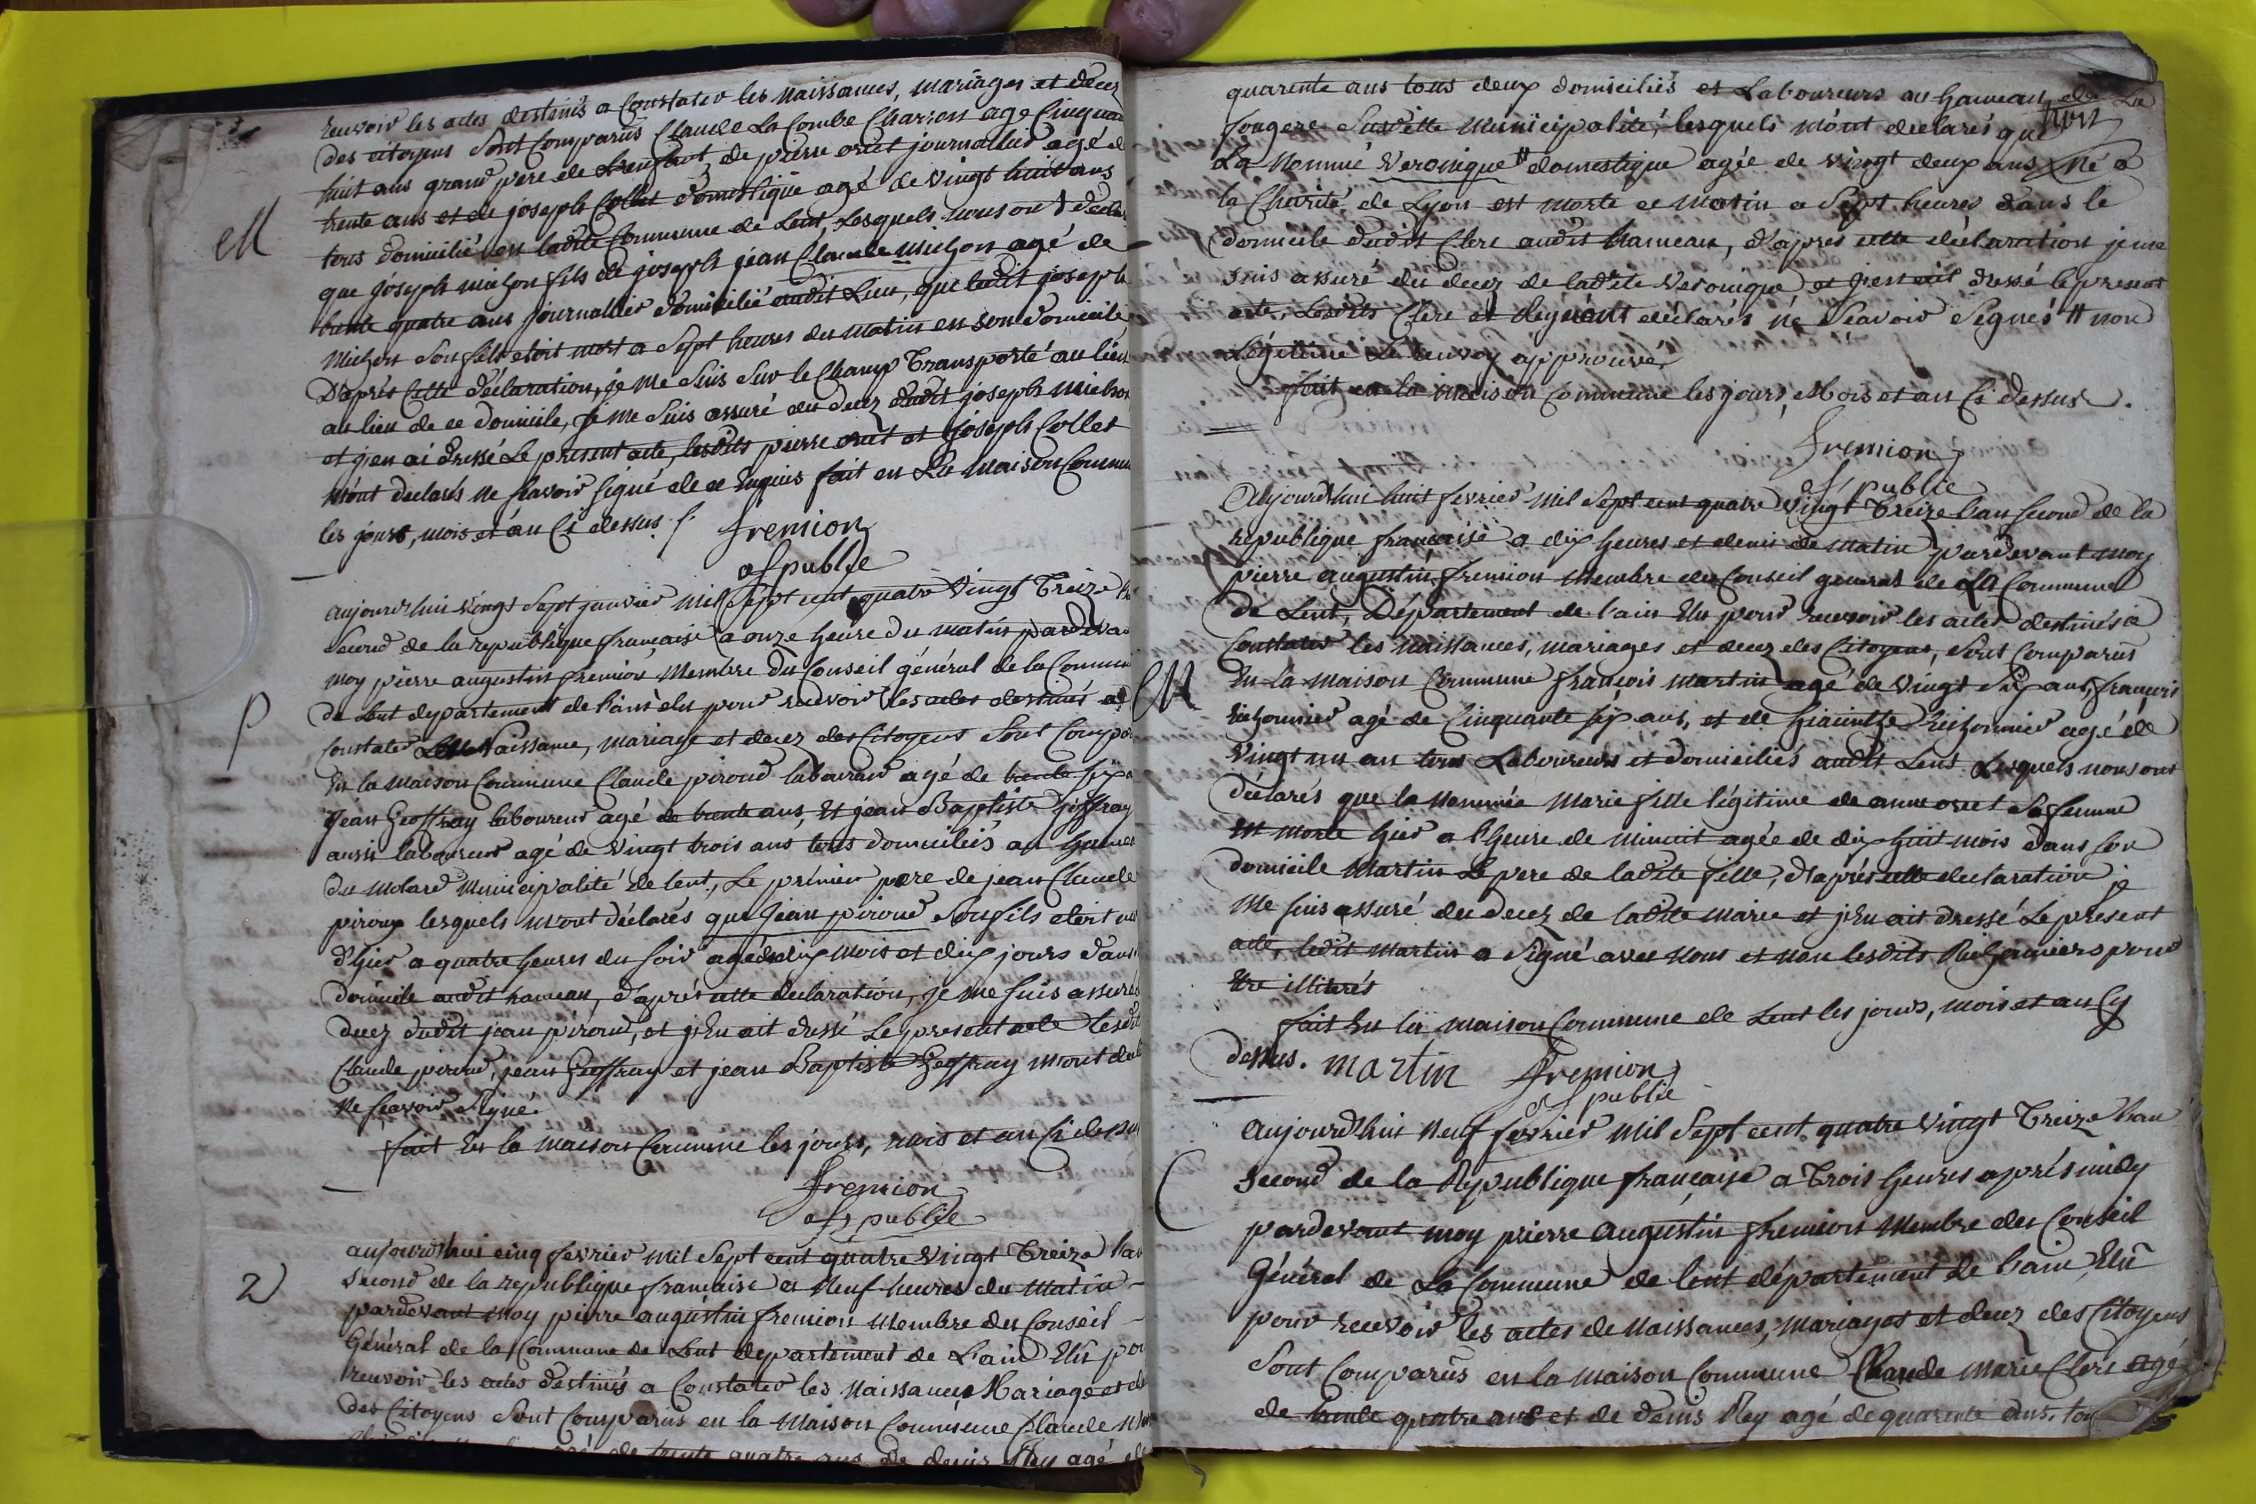 recevoir les actes destinés a Constater les Naissances, mariages et decez
des citoyens sont Comparus Claude La Combe Charron age Cinquan
huit ans grand pere de L'enfant, de pierre oret journallier agé d
trente ans et de joseph Collet domestique agé de vingt huit ans
M
tous domicilié en ladite Commune de Lent, Lesquels nous ont déclar
que joseph michon fils de joseph jean Claude michon agé de
trente quatre ans journallier domicilié audit Lieu, que ledit joseph
Michon son fils etoit mort a Sept heures du matin en son domicile
D'aprés Cette déclaration, je me suis sur le Champ Transporté au lieu
au lieu de ce domicile, je me suis assuré du decez dudit joseph michon
et j'en ai dressé Le present acte, lesdits pierre oret et joseph Collet
m'ont declarés ne sçavoir signé de ce Requis fait en La maison Commu
les jours, mois et an Ci dessus /.
fremion
of public
aujourdhui vingt Sept janvier mil Sept cent quatre vingt Treize
Second de la republique francaise a onze heure du matin pardeva
moy pierre augustin fremion Membre du Conseil général de la Commu
P
de Lent departement de l'ain élu pour recevoir les actes destinés a
Constater Les Naissance, mariage et decez des Citoyens Sont Compa
En la maison Commune Claude piroud laboureur agé de trente six a
jean Geoffray laboureur agé de trente ans, Et jean Baptiste Geoffray
aussi laboureur agé de vingt trois ans tous domiciliés au hamea
du molard municipalité de lent, Le prémier pere de jean Claude
piroux lesquels m'ont déclarés que jean piroud Son fils etoit
d'hier a quatre heures du soir agé de dix mois et dix jours dans
domicile audit hameau, d'aprés cette declaration, je me suis assuré
decez dudit jean piroud, et j'en ait dressé Le present acte lesd
Claude piroud, jean Geoffray et jean Baptiste Geoffray m'ont decl
Ne scavoir signé.
fait En la maison Commune les jours, mois et an Ci dessu
fremion
of public
aujourdhui cinq fevrier mil Sept cent quatre vingt Treize l'an
2
Second de la republique francaise a Neuf heures du Matin
pardevant moy pierre augustin fremion Membre du Conseil
Général de la Commune de Lent departement de L'ain Elu po
recevoir les actes destinés a Constater les Naissances Mariage et d
des Citoyens Sont Comparus en la Maison Commune Claude
de trente quatre ans de denis Rey agé d
quarente ans tous deux domiciliés et Laboureurs au hameau de La
fougere Susdite Municipalité, lesquels m'ont declarés que
La Nommé Veronique # domestique agée de vingt deux ans né a
la Charité de Lyon est morte ce matin a Sept heures dans le
domicile dudit Clerc audit hameau, d'apres cette déclaration je me
suis assuré du decez de ladite Veronique et j'en ait dressé le present
acte, Lesdits Clerc et Rey m'ont déclarés né Sçavoir Signés # non
Légitime Le Renvoy approuvé
fait en la maison Commune les jours, Mois et an Ci dessus.
fremion
of public
Aujourdhui huit fevrier mil Sept cent quatre vingt Treize l'an second de la
republique francaise a dix heures et demi de matin pardevant moy
pierre augustin fremion Membre du Conseil general de La Commune
de Lent, Département de l'ain Elu pour recevoir les actes destinés a
Constater les Naissances, mariages et decez des Citoyens, Sont Comparus
M
En La maison Commune françois martin agé de vingt Six ans, françois
Richonnier agé de Cinquante six ans, et de hiacinthe Richonnier agé de
vingt un an tous Laboureurs et domiciliés audit Lent Lesquels nous ont
déclarés que la Nommée Marie fille légitime de anne oret Sa femme
Est morte hier a l'heure de Minuit agée de dix huit mois dans son
domicile Martin Le pere de ladite fille, d'aprés cette declaration je
Me suis assuré du decez de ladite marie et j'En ait dressé Le present
acte, ledit Martin a Signé avec Nous et Non lesdits Richonniers pour
Etre illiterés
fait En la maison Commune de Lent les jours, mois et an Cy
dessus. martin fremion
of public
Aujourdhui Neuf fevrier mil Sept cent quatre vingt Treize l'an
C
Second de la Republique francaise a Trois heures aprés midy
pardevant moy pierre augustin fremion Membre du Conseil
Général de La Commune de lent département de l'ain Elu
pour recevoir les actes de Naissances, mariages et decez des Citoyens
Sont Comparus en la maison Commune Claude marie Clerc agé
de trente quatre ans et de denis Rey agé de quarente ans, tou